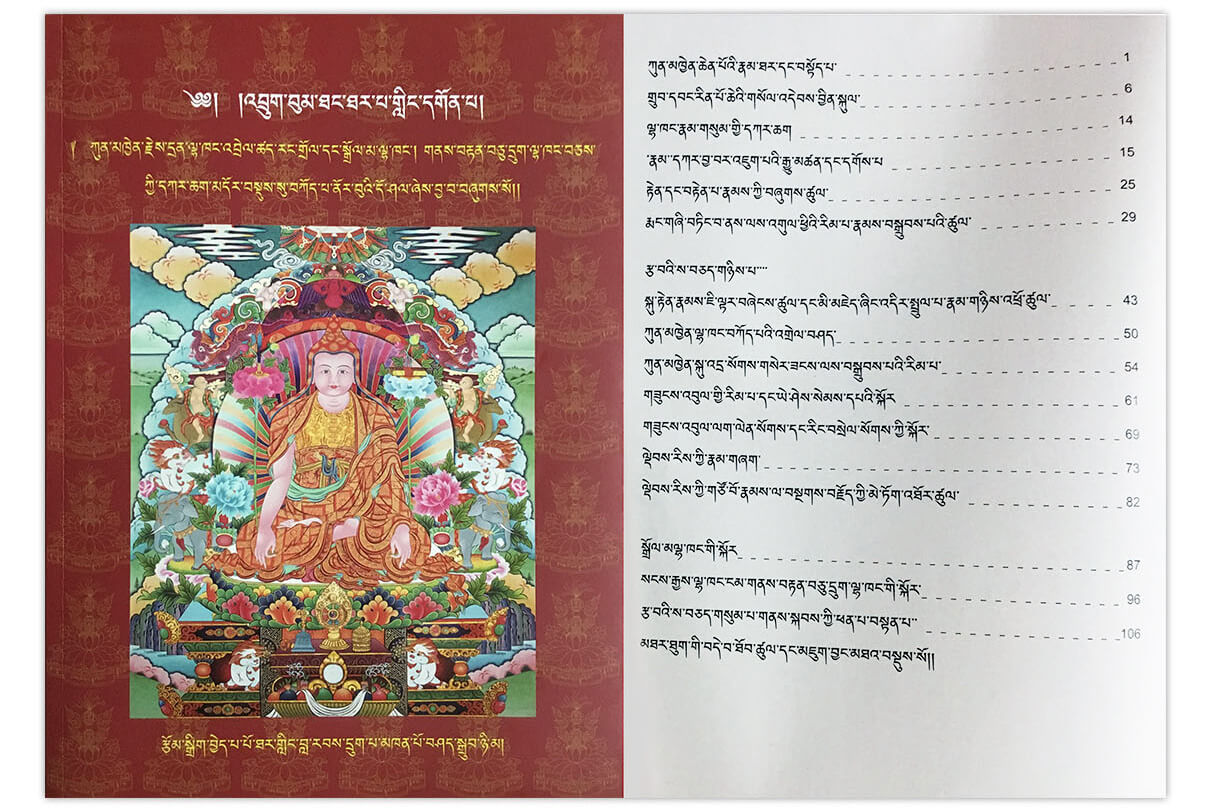 ༄༅། །འབྲུག་བུམ་ཐང་ཐར་པ་གླིང་དགོན་པ།
༈ ཀུན་མཁྱེན་རྗེས་དྲན་ལྷ་ཁང་འབྲེལ་ཚད་རང་གྲོལ་དང་སྒྲོལ་མ་ལྷ་ཁང་། གནས་བརྟན་བཅུ་དྲུག་ལྷ་ཁང་བཅས་
ཀྱི་དཀར་ཆག་མདོར་བསྡུས་སུ་བཀོད་པ་ནོར་བུའི་དོ་ཤལ་ཞེས་བྱ་བ་བཞུགས་སོ།།
རྩོམ་སྒྲིག་བྱེད་པ་པོ་ཐར་གླིང་བླ་རབས་དྲུག་པ་མཁན་པོ་བཤད་སྒྲུབ་ཉི་མ།
ཀུན་མཁྱེན་ཆེན་པོའི་རྣམ་ཐར་དང་བསྟོད་པ་ 1
གྲུབ་དབང་རིན་པོ་ཆེའི་གསོལ་འདེབས་བྱིན་སྐུལ་ 6
ལྷ་ཁང་རྣམ་གསུམ་གྱི་དཀར་ཆག 14
རྣམ་དཀར་བྱ་བར་འཇུག་པའི་རྒྱུ་མཚན་དང་དགོས་པ 15
རྟེན་དང་བརྟེན་པ་རྣམས་ཀྱི་བཞུགས་ཚུལ་ 25
རྨང་གཞི་བཏིང་བ་ནས་ལས་འགུལ་ཕྱིའི་རིམ་པ་རྣམས་བསྒྲུབས་པའི་ཚུལ་ 29
རྩ་བའི་ས་བཅད་གཉིས་པ་
སྐུ་རྟེན་རྣམས་ཇི་ལྟར་བཞེངས་ཚུལ་དང་མི་མཇེད་ཞིང་འདིར་སྤྲུལ་པ་རྣམ་གཉིས་འཕྲོ་ཚུལ་ 43
ཀུན་མཁྱེན་ལྷ་ཁང་བཀོད་པའི་འགྲེལ་བཤད་ 50
ཀུན་མཁྱེན་སྐུ་འདྲ་སོགས་གསེར་ཟངས་ལས་བསྒྲུབས་པའི་རིམ་པ་ 54
གཟུངས་འབུལ་གྱི་རིམ་པ་དང་ཡེ་ཤེས་སེམས་དཔའི་སྐོར 61
གཟུངས་འབུལ་ལག་ལེན་སོགས་དང་རིང་བསྲེལ་སོགས་ཀྱི་སྐོར་ 69
ལྡེབས་རིས་ཀྱི་རྣམ་གཞག་ 73
ལྡེབས་རིས་ཀྱི་གཙོ་བོ་རྣམས་ལ་བསྔགས་བརྗོད་ཀྱི་མེ་ཏོག་འཐོར་ཚུལ་ 82
སྒྲོལ་མ་ལྷ་ཁང་གི་སྐོར 87
སངས་རྒྱས་ལྷ་ཁང་ངམ་གནས་བརྟན་བཅུ་དྲུག་ལྷ་ཁང་གི་སྐོར་ 96
རྩ་བའི་ས་བཅད་གསུམ་པ་གནས་སྐབས་ཀྱི་ཕན་པ་བསྟན་པ་ 106
མཐར་ཐུག་གི་བདེ་བ་ཐོབ་ཚུལ་དང་མཇུག་བྱང་མཐའ་བསྡུས་སོ།།